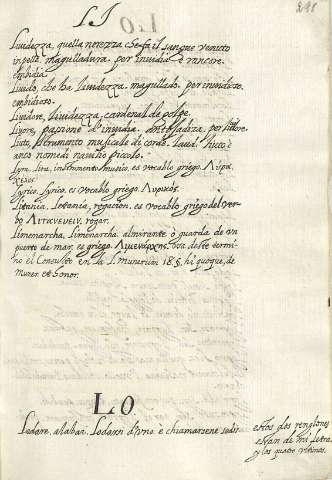 LI
218
Liuidezza, quella nerezza che fa il sangue venuto
in pelle, magulladura. per inuidia è rancore.
embidia.
Liuido, che ha liuidezza. magullado. per inuidioso.
embidioso.
Liuidore, liuidezza, cardenal de golpe.
Liuore, passione d'inuidia.
Liuto, strumento musicale di corde. Laud.
anco nome di nauilio piccolo.
Lyra, lira, instrumento musico, es vocablo griego. Λύρα.
Lyrico. Lyrico. es vocablo griego. Λυρικός.
Litania, Letania, rogacion, es vocablo griego del ver-
bo Λιτανεύειν, rogar.
Limenarcha, Limenarcha. almirante ò guarda de vn
puerto de mar. es griego. Λιμενάρχης. Usa deste termi-
no el Consulto en la l. Munerum 18. §. hi quoque, de
Muner. et honor.
LO
Lodare, alabar. Lodarsi d'vno è chiamarsene sodis
estos dos renglones
estan de mi letra
y los quatro vltimos.